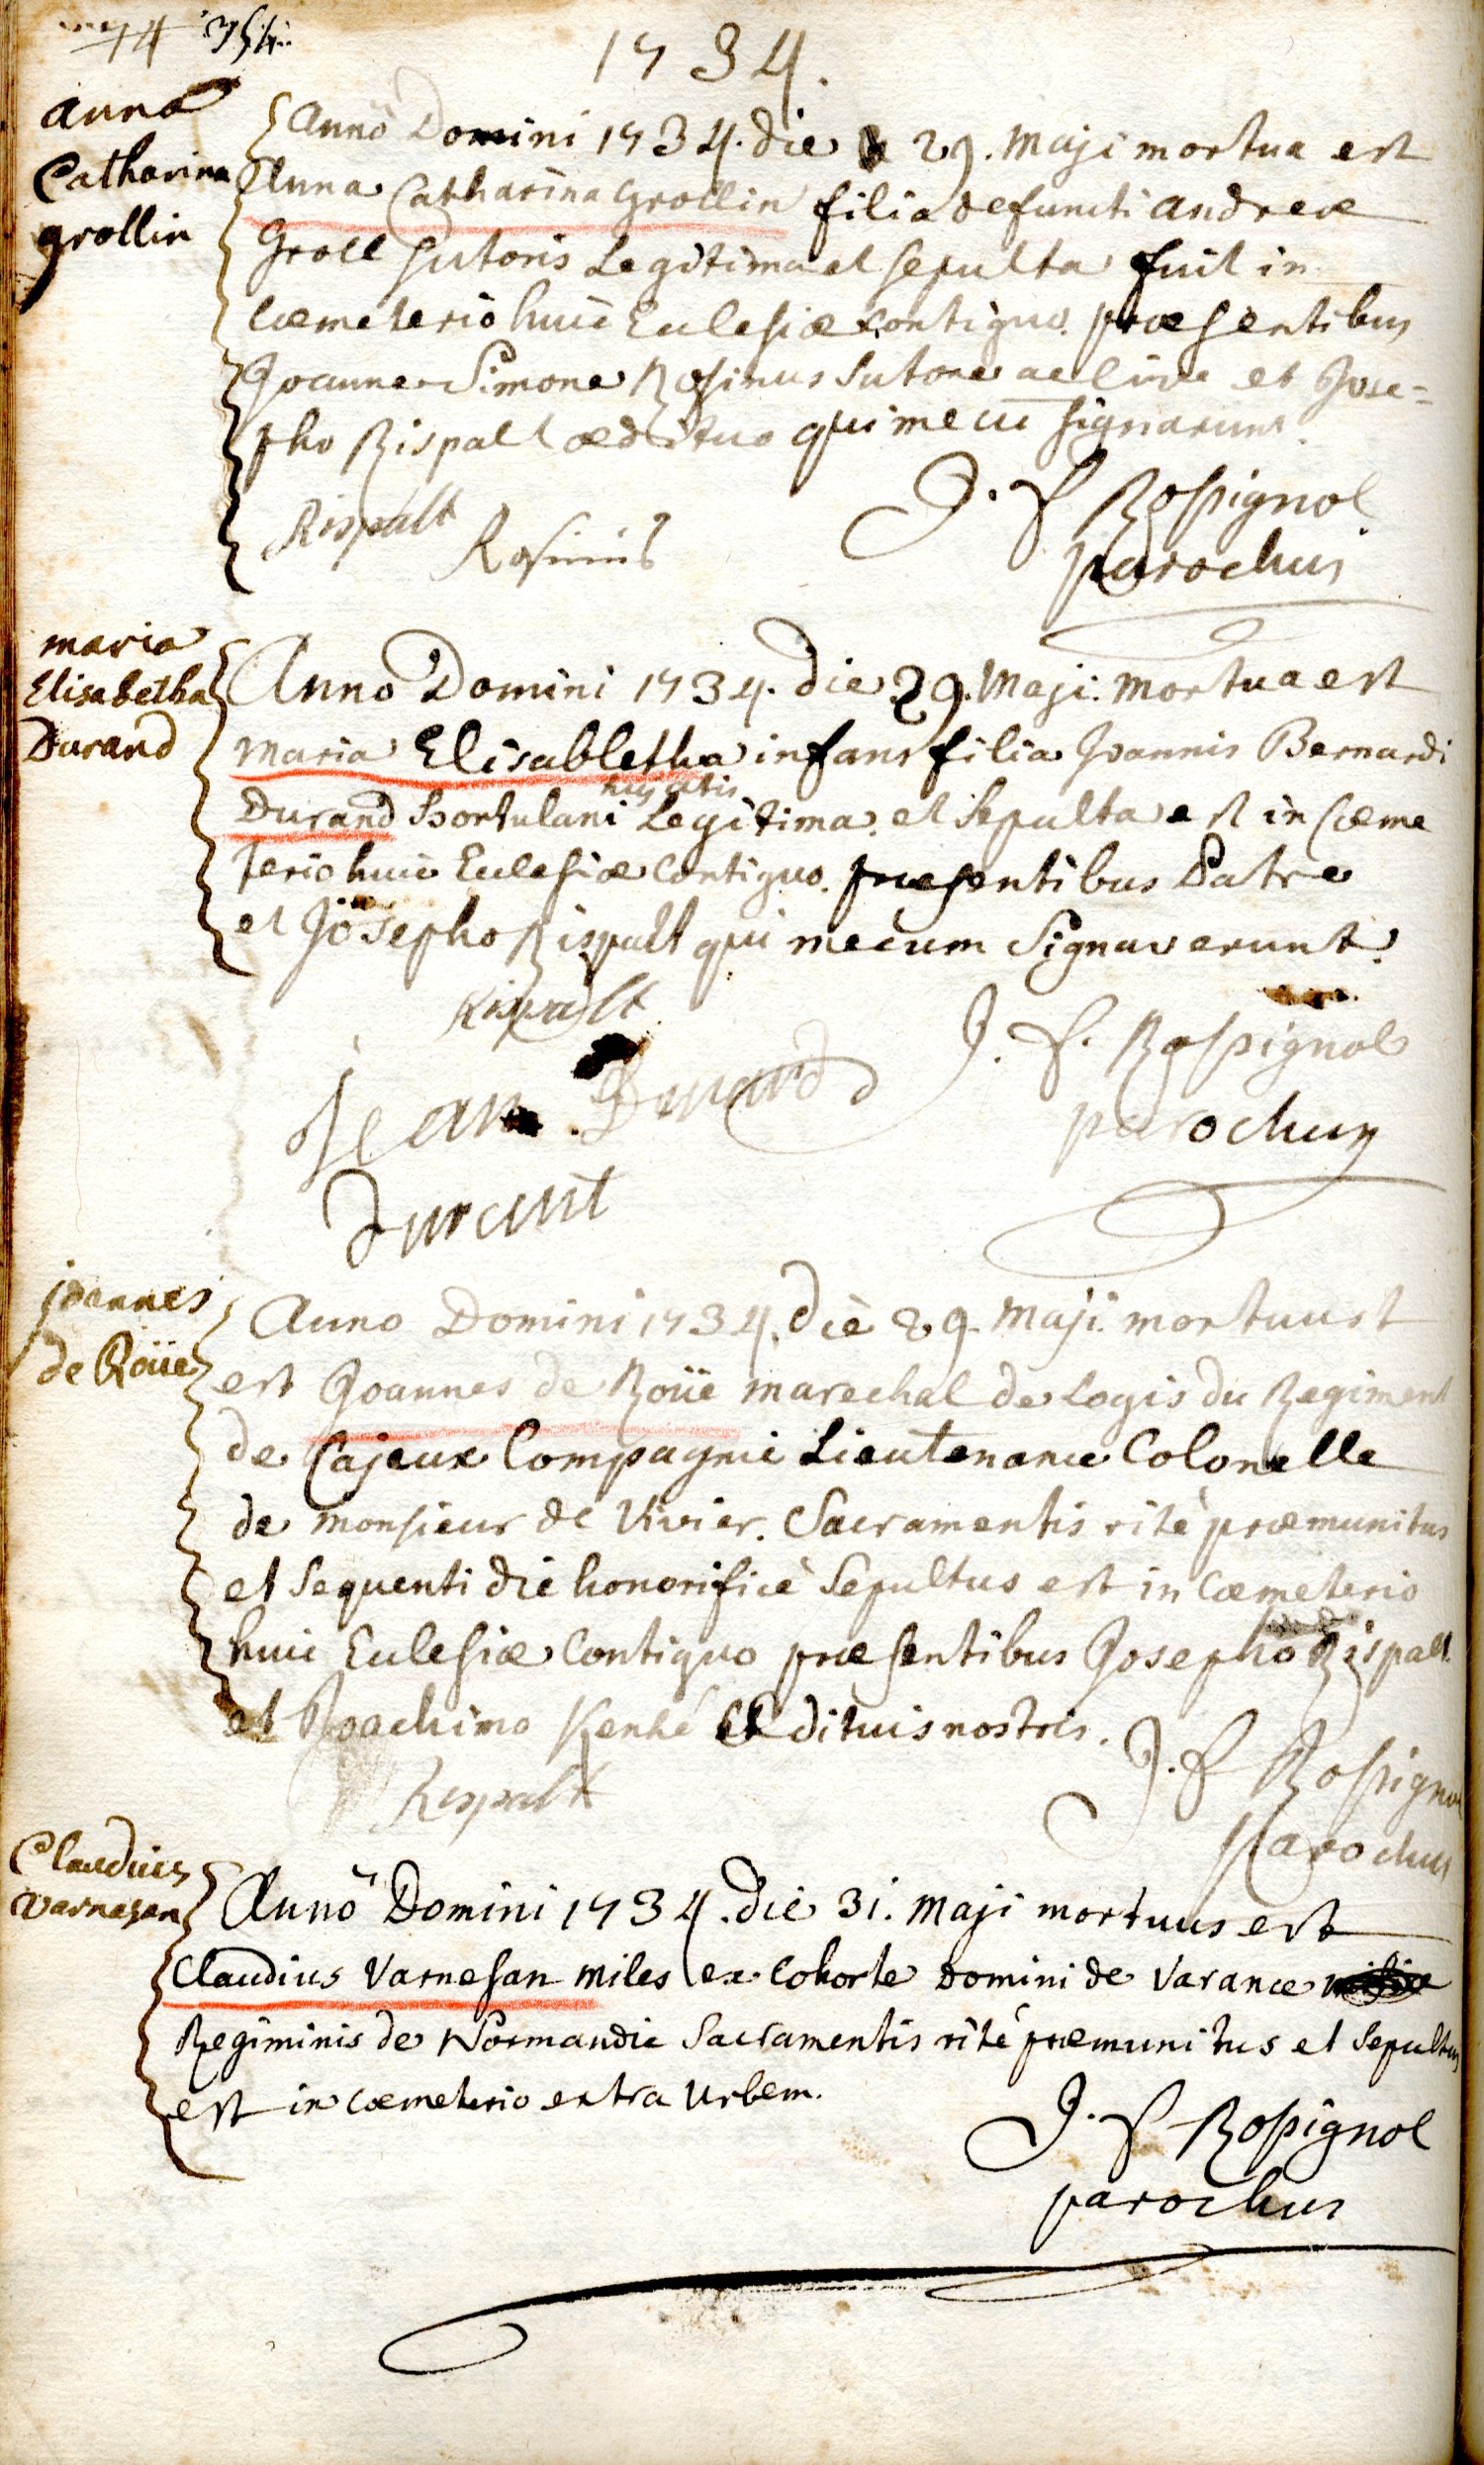 1734.
anna
Catharina
grollin
Anno Domini 1734. die 29. Maji mortua est
Anna Catharina Grollin filia defuncti andreæ
Groll Sutoris Legitima et sepulta fuit in
Cæmeterio huic Eclesiæ contiguo. præsentibus
Joanne Simone Rosinus Sutore ac cive et Jose=
pho Rispalt ædituo qui mecū signarunt.
Rispalt Rosinus
J. S Rossignol
parochus
maria
Elisabetha
Durand
Anno Domini 1734. die 29. Maji. mortua est
Maria Elisabletha infans filia Joannis Bernardi
hujatis
Durand Hortulani Legitima. et Sepulta est in Cæme
terio huic Eclesiæ Contiguo. præsentibus Patre
et Josepho Rispalt qui mecum Signaverunt.
Rispalt
J. S. Rossignol
Jean Durand
parochus
durant
joannes
de Roüe
Anno Domini 1734. die 29. Maji. mortuust
est Joannes de Roüe marechal de Logis du Regiment
de Cajeux Compagnie Lieutenance Colonelle
de monsieur de Vivier. Sacramentis ritè præmunitus
et Sequenti die honorificè Sepultus est in Cæmeterio
huic Eclesiæ Contiguo præsentibus Josepho Rispalt
et Joachimo Kenké Ædituis nostris.
Rispalt
J. S Rossignol
Parochus
Claudius
Varnesan
Anno Domini 1734. die 31. Maji mortuus est
Claudius Varnesan miles ex Cohorte Domini de Varance
Regiminis de Normandie Sacramentis ritè præmunitus et Sepultus
est in cæmeterio extra Urbem.
J. S Rossignol
parochus